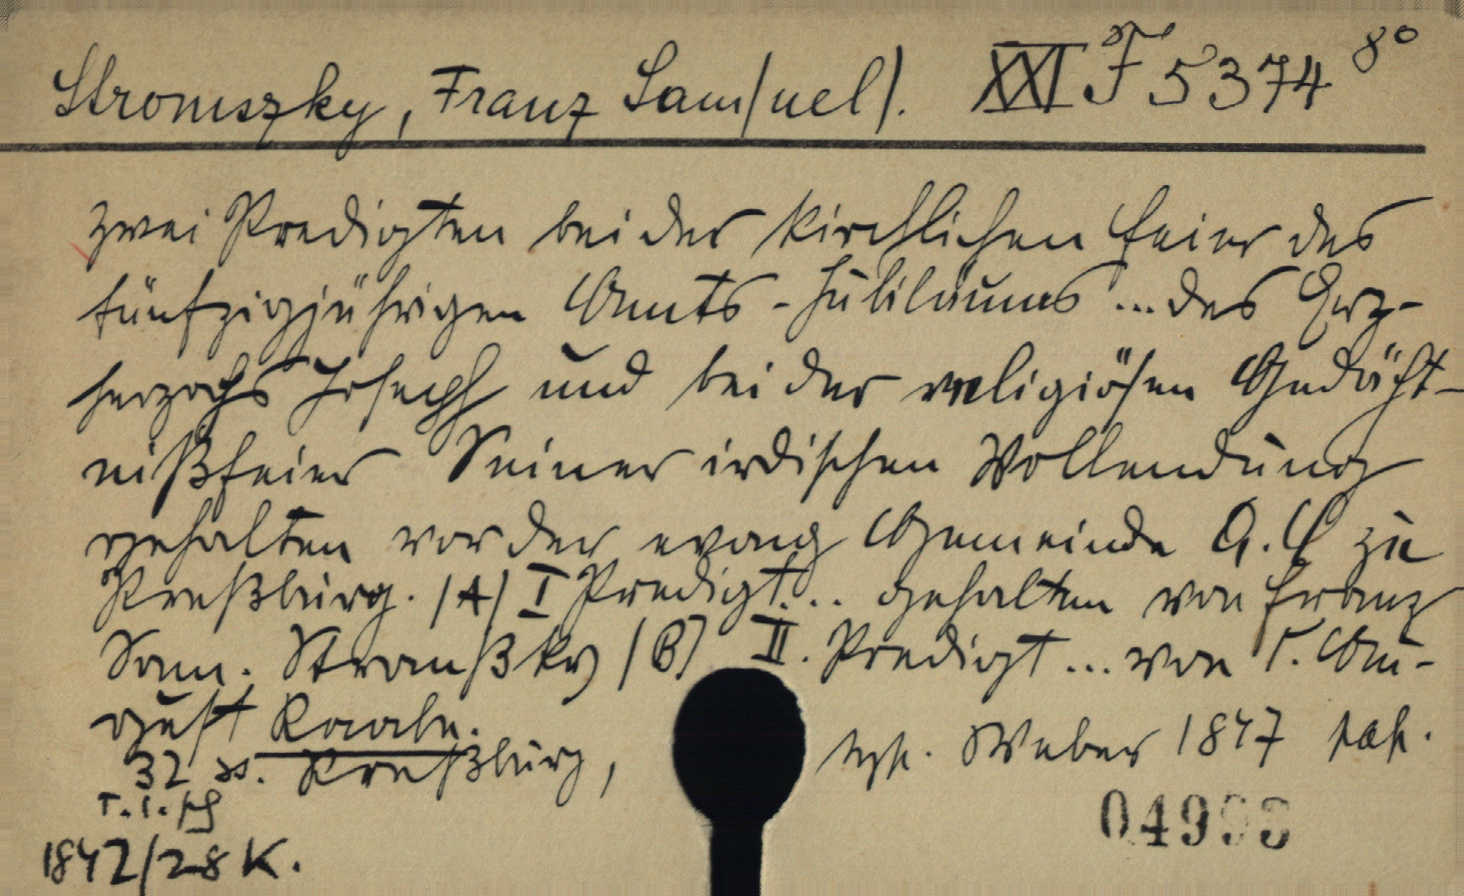 Stromszky, Franz Sam(uel). XXI F 5374 8°
Zwei Predigten bei der kirchlichen Feier des
fünfzigjährigen Amts-Jubiläums ... des Erz-
herzogs Joseph und bei der religiösen Gedächt-
nißfeier Seiner irdischen Vollendung
gehalten vor der evang Gemeinde A. C. zu
Preßburg. (A) I Predigt... gehalten von Franz
Sam. Stromßky (B) II. Predigt ... von Au-
gust Raabe.
32 SS. Preßburg, typ. Weber 1847
1842/28 K.